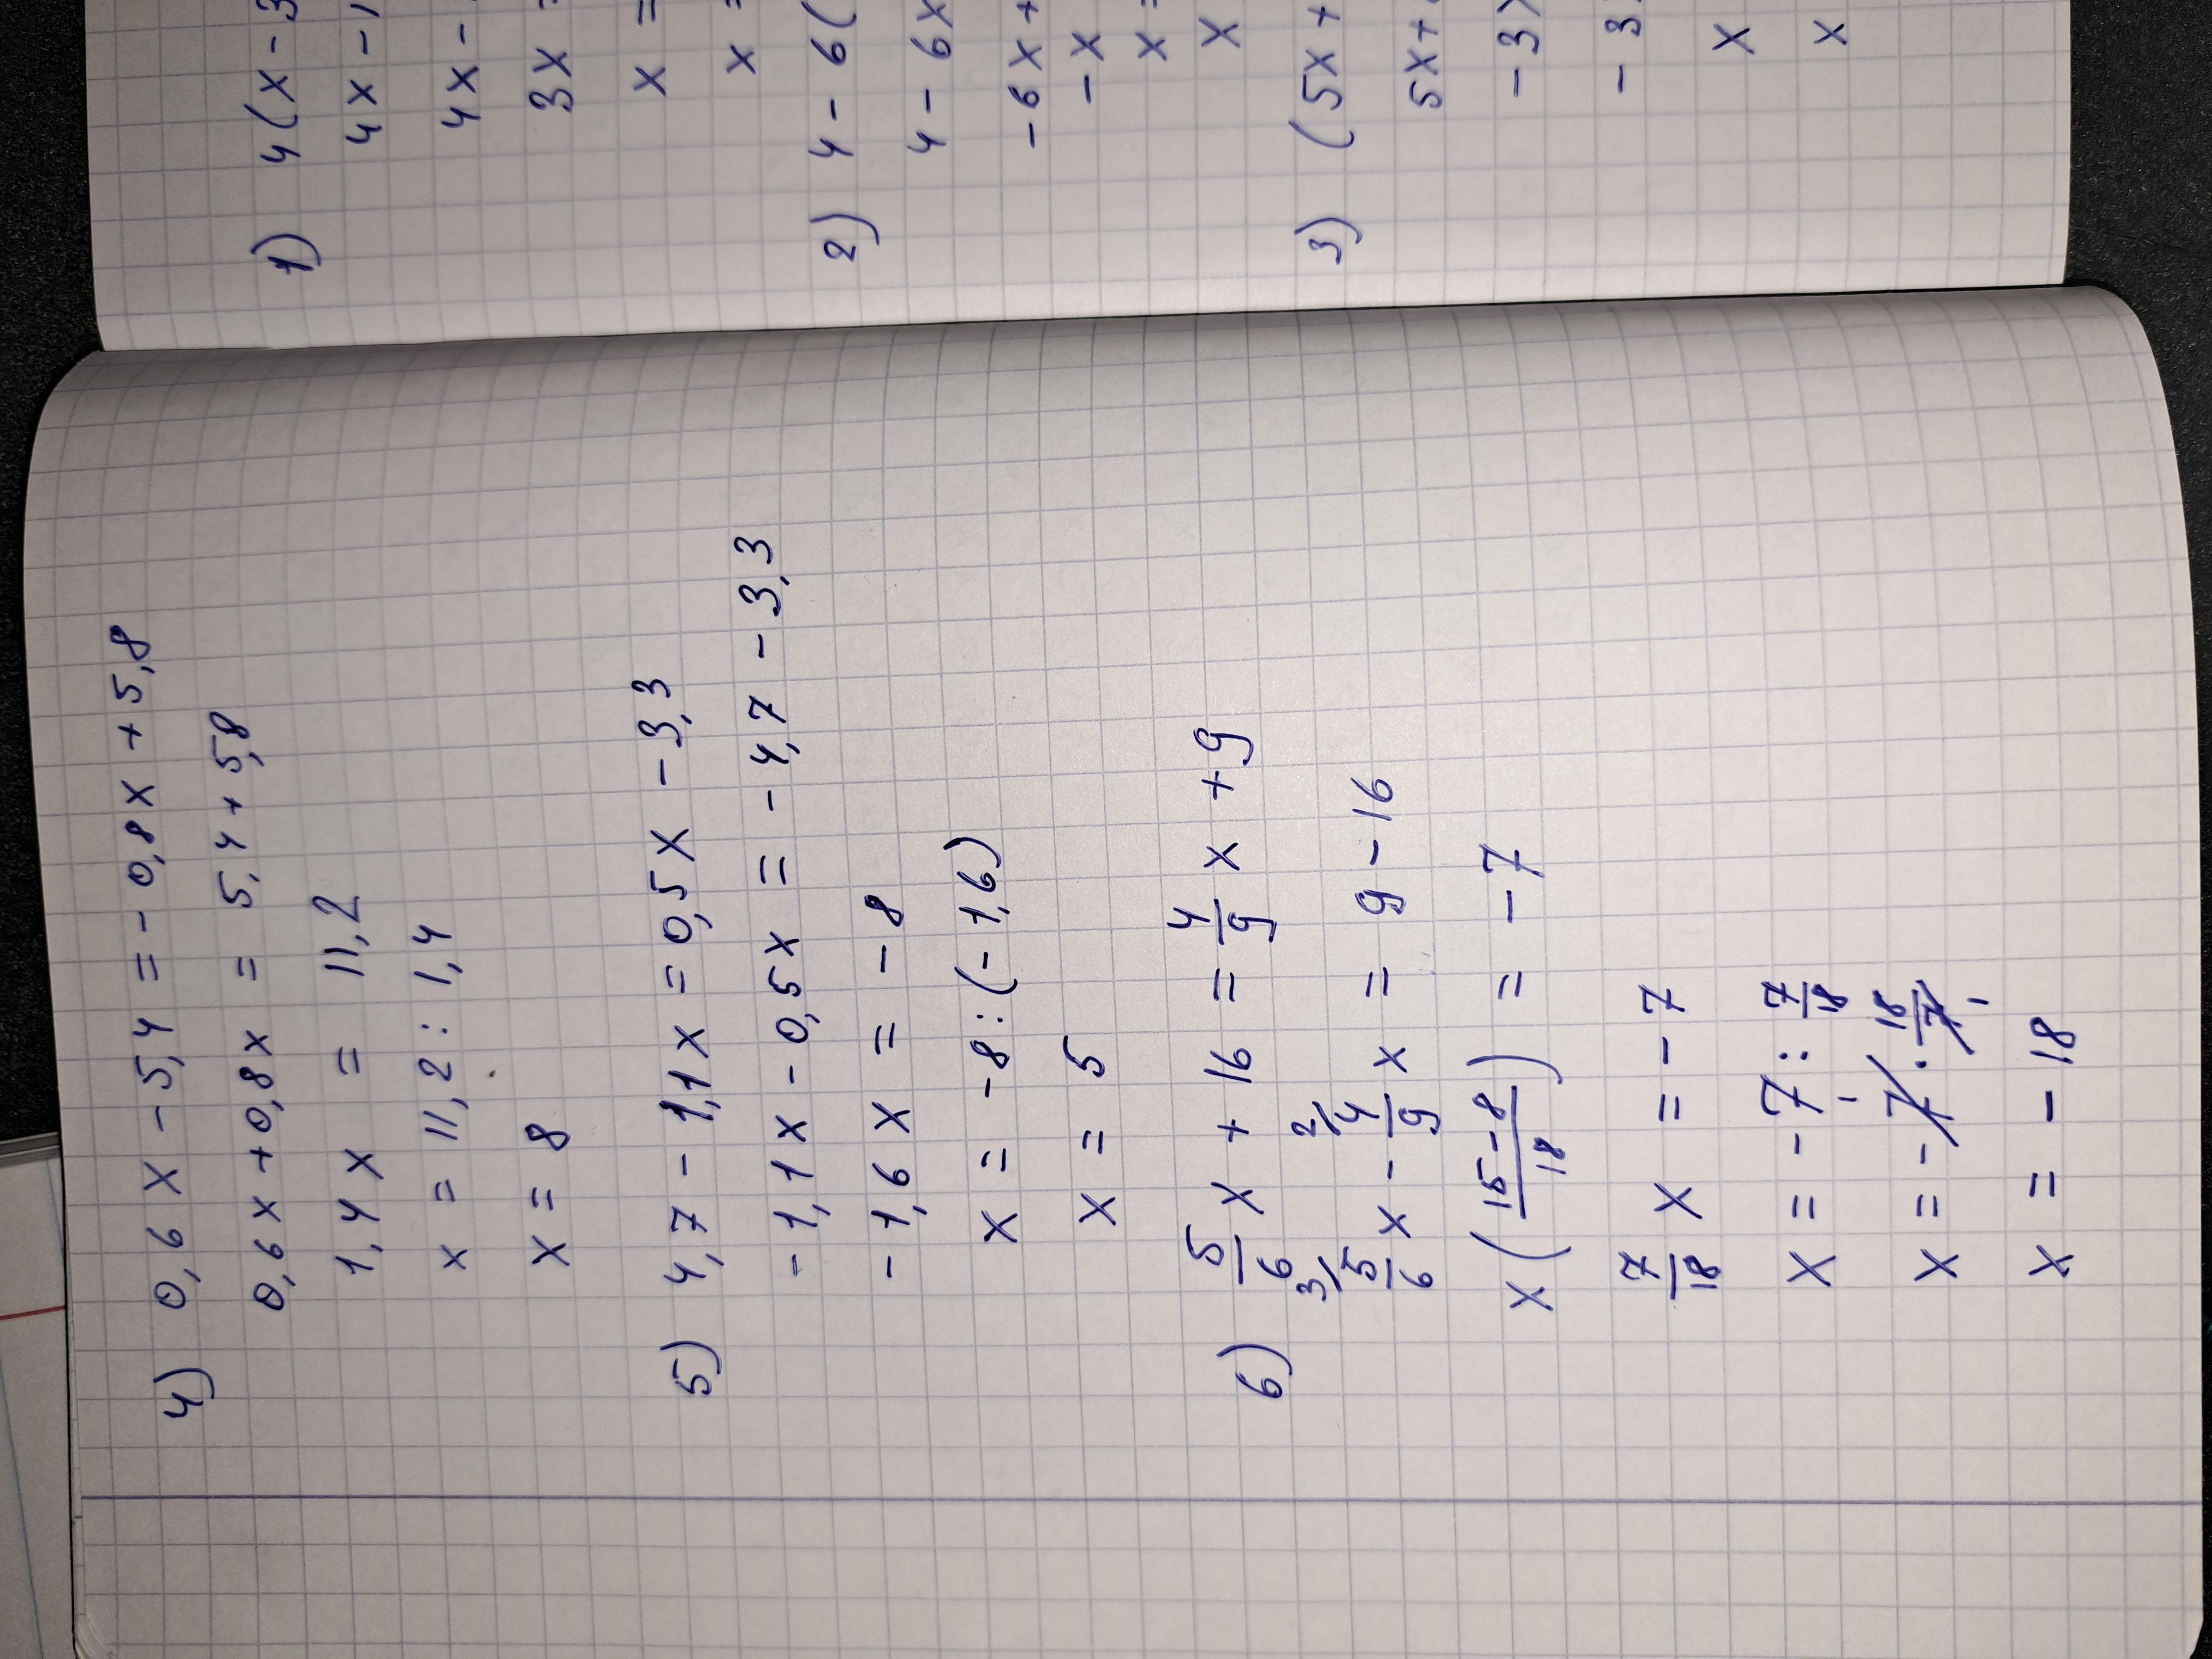 4) 0,6x - 5,4 = -0,8x + 5,8
0,6x + 0,8x = 5,4 + 5,8
1,4x = 11,2
x = 11,2 : 1,4
x = 8
5) 4,7 - 1,1x = 0,5x - 3,3
-1,1x - 0,5x = -4,7 - 3,3
-1,6x = -8
x = -8 : (-1,6)
x = 5
6) 5/6 x + 16 = 4/9 x + 9
3/ 5/6 x - 2/ 4/9 x = 9 - 16
x ( 15-8 / 18 ) = -7
7/18 x = -7
x = -7 : 7/18
x = -7 · 18/7
x = -18
1) 4(x-3
4x-1
4x-
3x
x =
x =
2) 4-6(
4-6x
-6x+
-x
x =
x
3) (5x+
5x+
-3x
-3
x
x